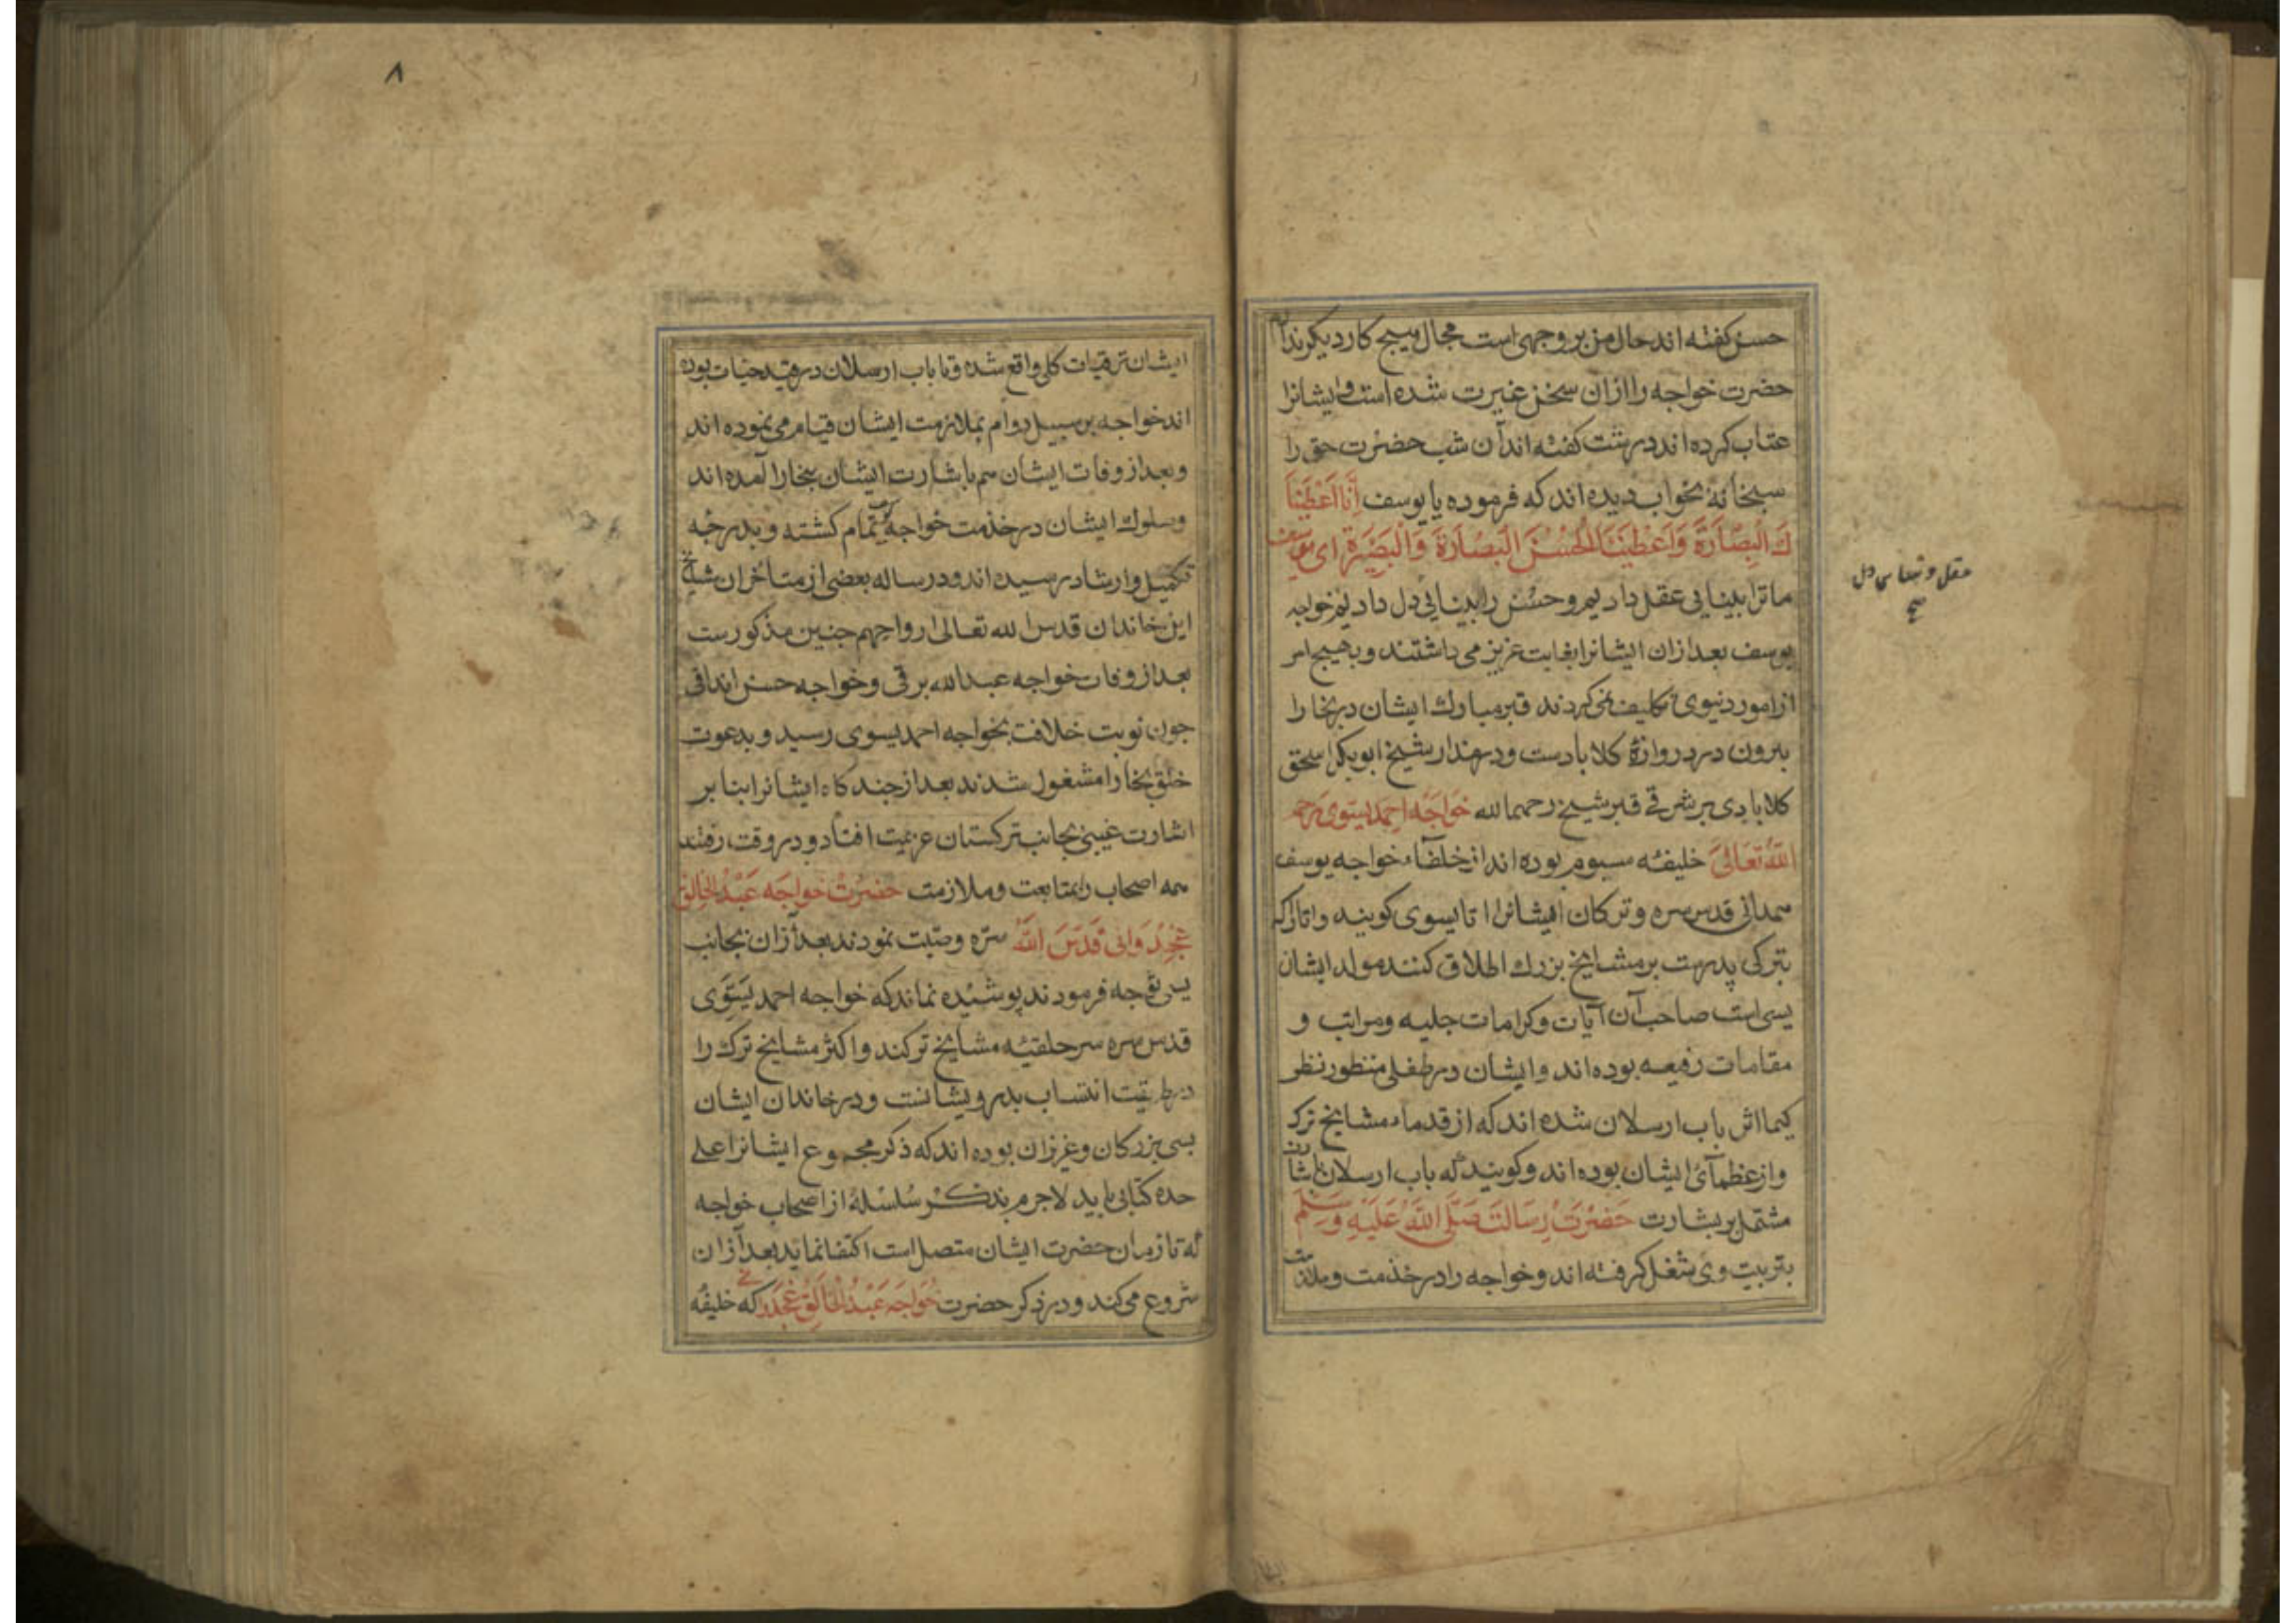 حسن کفته اند حال من بر وجهی است مجال هیج کار دیکر ندارم
حضرت خواجه را ازان سخن غیرت شده است و ایشانرا
عتاب کرده اند درشت کفته اند آن شب حضرت حق را
سبحانه بخواب دیده اند که فرموده یا یوسف أنا أعطینا
ك البصارة وأعطینا الحسن البصارة والبصیرة ای یوسف
ما ترا بینایی عقل دادیم و حسن را بینایی دل دادیم خواجه
یوسف بعد ازان ایشانرا بغایت عزیز می داشتند و بهیج امر
از امور دنیوی تکلیف نمی کردند قبر مبارك ایشان در بخارا
بیرون در دروازهٔ کلابادست ودر مزار شیخ ابو بکر اسحق
کلابادی بر شرقے قبر شیخ رحمهما الله خواجه احمد یسوی رحمه
الله تعالی خلیفه سیوم بوده اند از خلفاء خواجه یوسف
همدانی قدس سره و ترکان ایشانرا اتا یسوی کویند و اتا
بترکی پدرست بر مشایخ بزرك اطلاق کنند مولد ایشان
یسی است صاحب آن آیات و کرامات جلیه و مراتب و
مقامات رفیعه بوده اند و ایشان در طفلی منظور نظر
کیما اثر باب ارسلان شده اند که از قدماء مشایخ ترک
و از عظمآئ ایشان بوده اند و کویند که باب ارسلان باشارت
مشتمل بر بشارت حضرت رسالت صلی الله علیه وسلم
بتربیت وی شغل کرفته اند و خواجه را در خذمت و ملازمت
عقل و دل
صح
۸
ایشان ترقیات کلی واقع شده و تا باب ارسلان در قید حیات بوده
اند خواجه بر سبیل دوام بملازمت ایشان قیام می نموده اند
و بعد از وفات ایشان هم باشارت ایشان ببخارا آمده اند
و سلوك ایشان در خذمت خواجه تمام کشته و بدرجه
تکمیل و ارشاد رسیده اند و در ساله بعضی از متأخران مشایخ
این خاندان قدس الله تعالی ارواحهم جنین مذکورست
بعد از وفات خواجه عبد الله برقی و خواجه حسن اندافی
جون نوبت خلافت بخواجه احمد یسوی رسید و بدعوت
خلق بخارا مشغول شدند بعد از جند کاه ایشانرا بنا بر
اشارت غیبی بجانب ترکستان عزیمت افتاد و در وقت رفتند
همه اصحاب را بمتابعت و ملازمت حضرت خواجه عبد الخالق
غجدوانی قدس الله سره وصیت نمودند بعد ازان بجانب
یسی توجه فرمودند پوشیده نماند که خواجه احمد یسوی
قدس سره سر حلقیه مشایخ ترکند و اکثر مشایخ ترك را
در طریقت انتساب بدرویشانست و در خاندان ایشان
بسی بزرکان و عزیزان بوده اند که ذکر مجموع ایشانرا علی
حده کتابی باید لاجرم بذکر سلسلهٔ از اصحاب خواجه
که تا زمان حضرت ایشان متصل است اکتفا نماید بعد ازان
شروع می کند و در ذکر حضرت خواجه عبد الخالق غجد که خلیفه